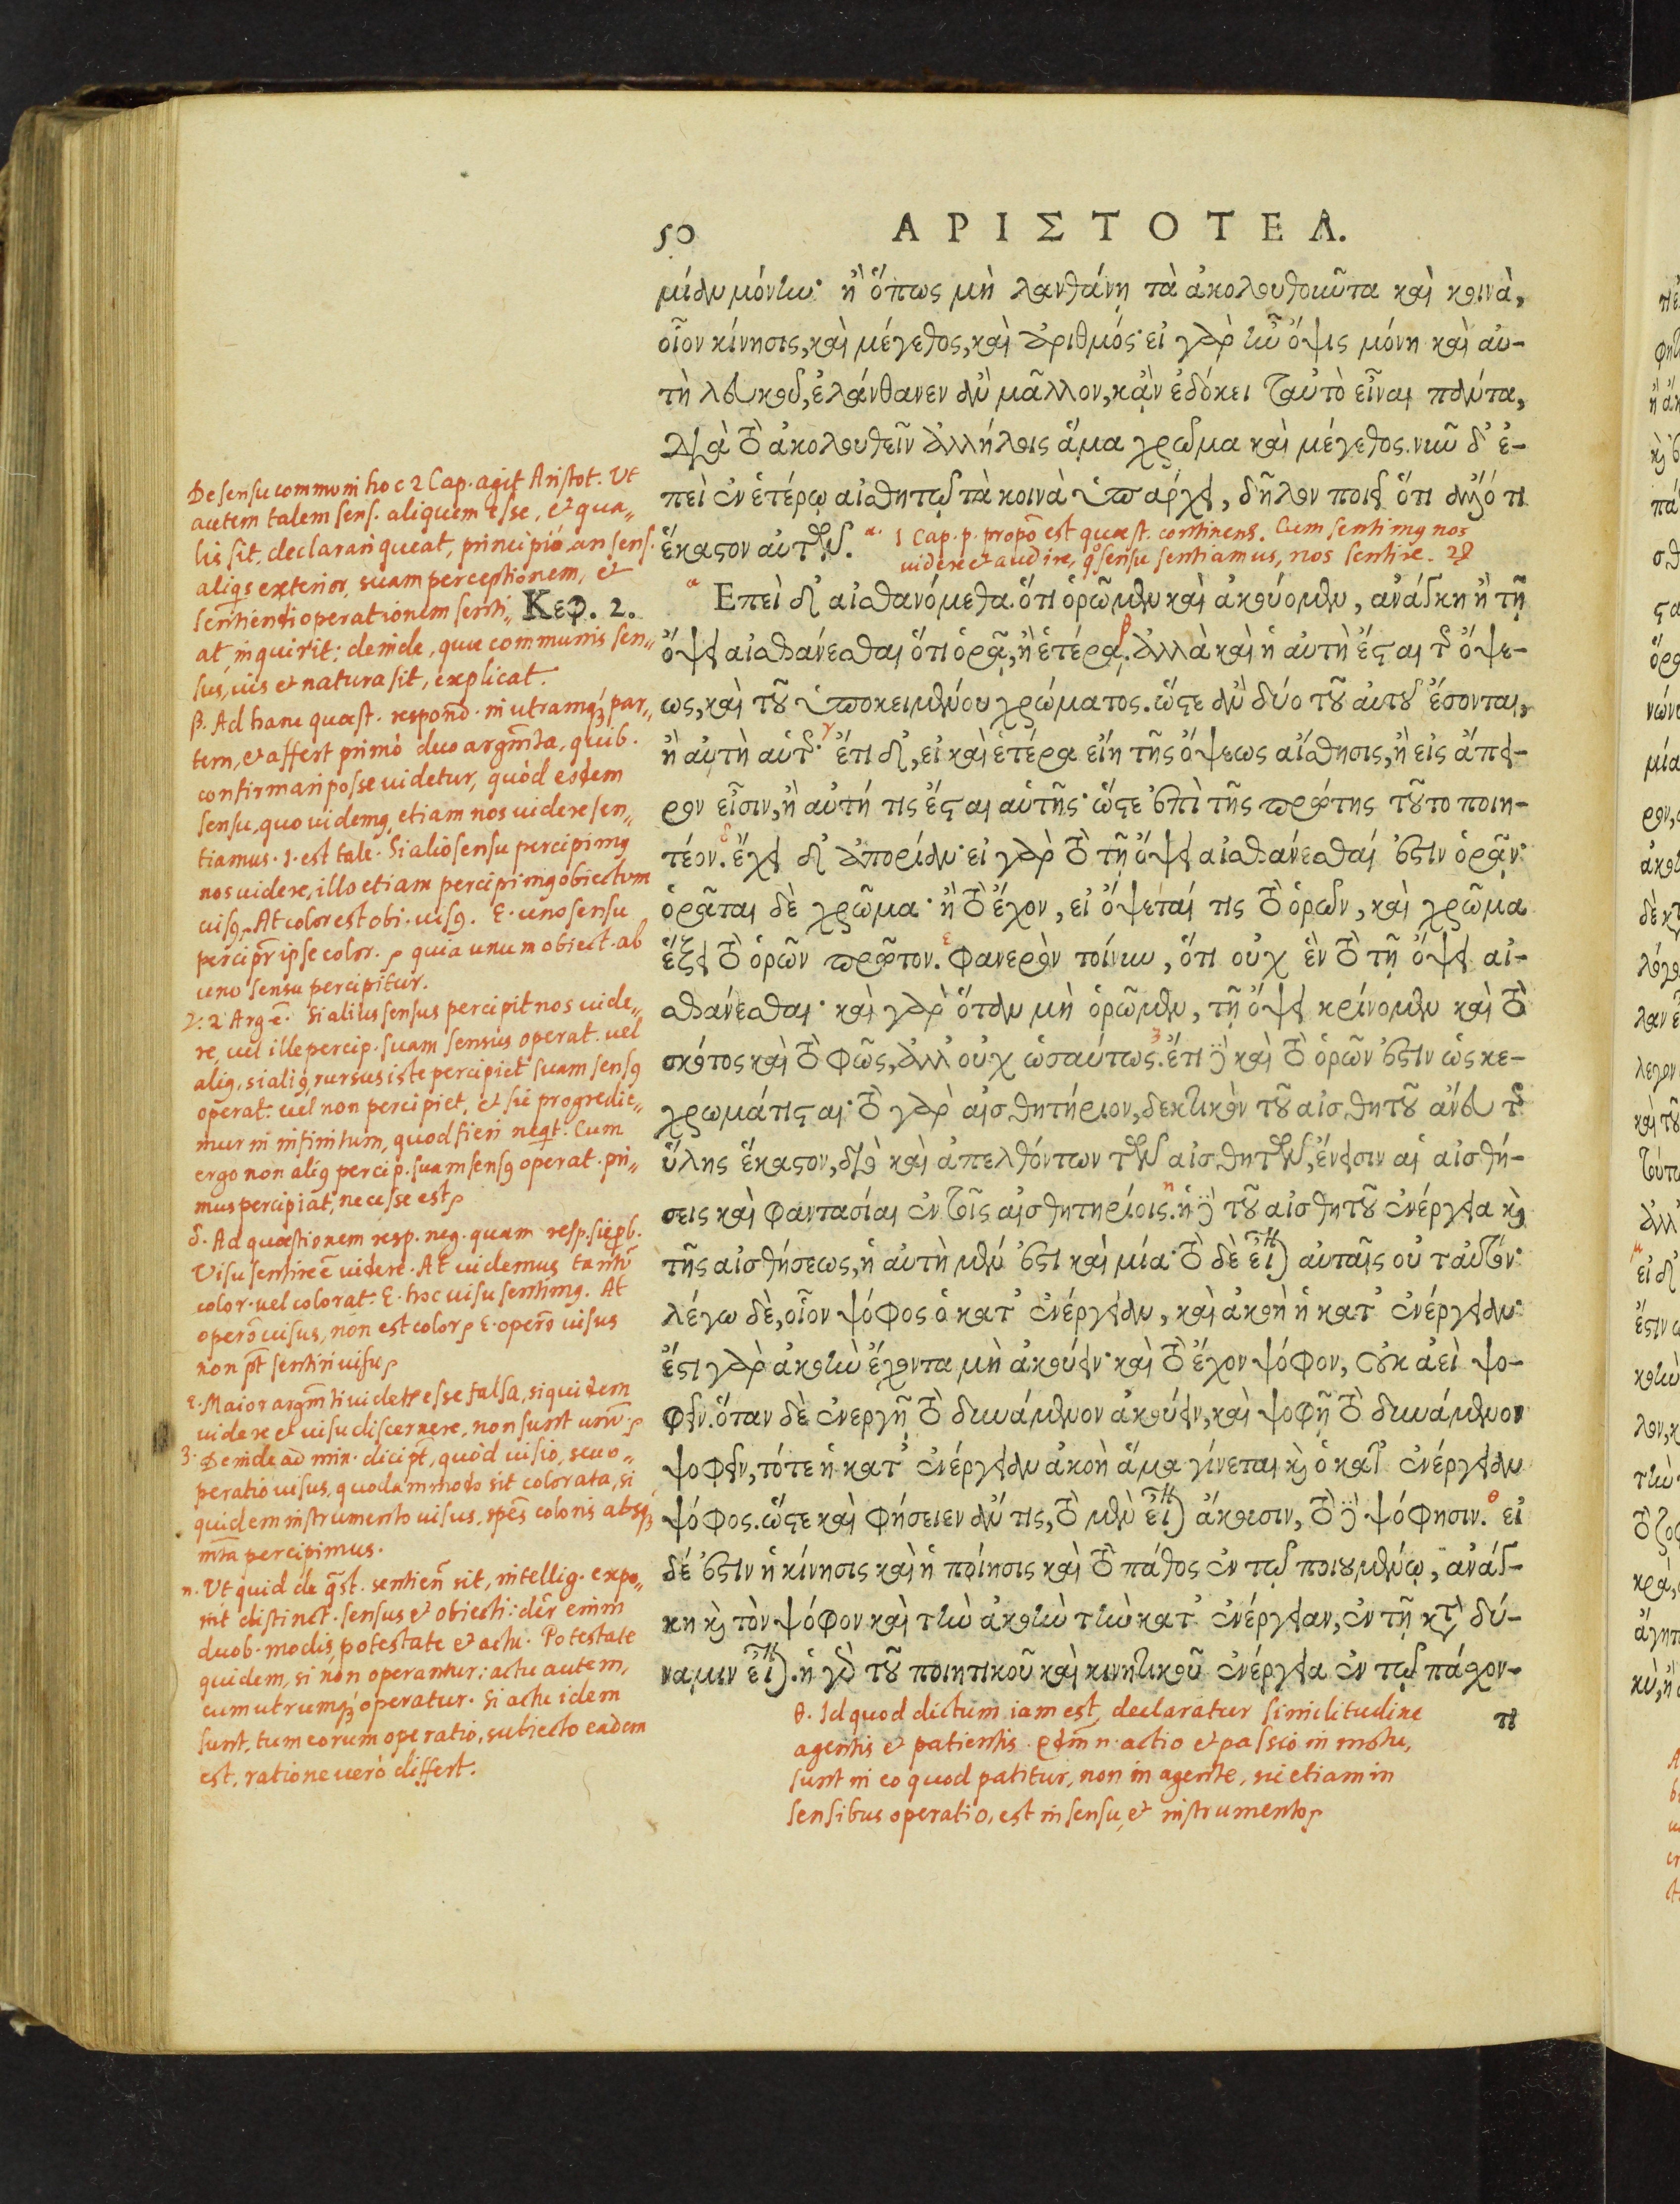 50 ΑΡΙΣΤΟΤΕΛ.
μίαν μόνην· ἢ ὅπως μὴ λανθάνῃ τὰ ἀκολουθοῦντα καὶ κοινὰ,
οἷον κίνησις, καὶ μέγεθος, καὶ ἀριθμός· εἰ γὰρ ἦν ὄψις μόνη καὶ αὐ-
τὴ λευκοῦ, ἐλάνθανεν ἂν μᾶλλον, κἂν ἐδόκει ταὐτὸ εἶναι πάντα,
διὰ τὸ ἀκολουθεῖν ἀλλήλοις ἅμα χρῶμα καὶ μέγεθος. νῦν δ' ἐ-
πεὶ ἐν ἑτέρῳ αἰσθητῷ τὰ κοινὰ ὑπάρχει, δῆλον ποιεῖ ὅτι ἄλλό τι
ἕκαστον αὐτῶν. α. 1 Cap. p. propõ est quæst. continens. Cum sentimq nos
videre et audire, qõ sensu sentiamus, nos sentire.
Κεφ. 2.
α Επεὶ δ' αἰσθανόμεθα ὅτι ὁρῶμεν καὶ ἀκούομεν, ἀνάγκη ἢ τῇ
ὄψει αἰσθάνεσθαι ὅτι ὁρᾷ, ἢ ἑτέρᾳ. β ἀλλὰ καὶ ἡ αὐτὴ ἔσται τῆς ὄψε-
ως, καὶ τοῦ ὑποκειμένου χρώματος. ὥστε ἂν δύο τοῦ αὐτοῦ ἔσονται,
ἢ αὐτὴ αὑτῆς· γ ἔτι δ', εἰ καὶ ἑτέρα εἴη τῆς ὄψεως αἴσθησις, ἢ εἰς ἄπει-
ρον εἶσιν, ἢ αὐτή τις ἔσται αὑτῆς· ὥστε ἐπὶ τῆς πρώτης τοῦτο ποιη-
τέον. δ ἔχει δ' ἀπορίαν· εἰ γὰρ τὸ τῇ ὄψει αἰσθάνεσθαί ἐστιν ὁρᾷν·
ὁρᾶται δὲ χρῶμα· ἢ τὸ ἔχον, εἰ ὄψεταί τις τὸ ὁρῶν, καὶ χρῶμα
ἕξει τὸ ὁρῶν πρῶτον. ε Φανερὸν τοίνυν, ὅτι οὐχ ἓν τὸ τῇ ὄψει αἰ-
σθάνεσθαι· καὶ γὰρ ὅταν μὴ ὁρῶμεν, τῇ ὄψει κρίνομεν καὶ τὸ
σκότος καὶ τὸ φῶς, ἀλλ' οὐχ ὡσαύτως. ζ ἔτι δὲ καὶ τὸ ὁρῶν ἐστιν ὡς κε-
χρωμάτισται· τὸ γὰρ αἰσθητήριον, δεκτικὸν τοῦ αἰσθητοῦ ἄνευ τῆς
ὕλης ἕκαστον, διὸ καὶ ἀπελθόντων τῶν αἰσθητῶν, ἔνεισιν αἱ αἰσθή-
σεις καὶ φαντασίαι ἐν τοῖς αἰσθητηρίοις. η ἡ δὲ τοῦ αἰσθητοῦ ἐνέργεια καὶ
τῆς αἰσθήσεως, ἡ αὐτὴ μέν ἐστι καὶ μία· τὸ δὲ εἶναι αὐταῖς οὐ ταὐτόν·
λέγω δὲ, οἷον ψόφος ὁ κατ' ἐνέργειαν, καὶ ἀκοὴ ἡ κατ' ἐνέργειαν·
ἔστι γὰρ ἀκοὴν ἔχοντα μὴ ἀκούειν· καὶ τὸ ἔχον ψόφον, οὐκ ἀεὶ ψο-
φεῖν. ὅταν δὲ ἐνεργῇ τὸ δυνάμενον ἀκούειν, καὶ ψοφῇ τὸ δυνάμενον
ψοφεῖν, τότε ἡ κατ' ἐνέργειαν ἀκοὴ ἅμα γίνεται καὶ ὁ κατ' ἐνέργειαν
ψόφος. ὥστε καὶ φήσειεν ἄν τις, τὸ μὲν εἶναι ἄκουσιν, τὸ δὲ ψόφησιν. θ εἰ
δέ ἐστιν ἡ κίνησις καὶ ἡ ποίησις καὶ τὸ πάθος ἐν τῷ ποιουμένῳ, ἀνάγ-
κη καὶ τὸν ψόφον καὶ τὴν ἀκοὴν τὴν κατ' ἐνέργειαν, ἐν τῇ κατὰ δύ-
ναμιν εἶναι. ἡ γὰρ τοῦ ποιητικοῦ καὶ κινητικοῦ ἐνέργεια ἐν τῷ πάσχον-
τι
De sensu communi hoc 2 Cap. agit Aristot. Ut
autem talem sens. aliquem esse, et qua„
lis sit, declarari queat, principiò an sens.
aliqs exterior, suam perceptionem, et
sentiendi operationem senti„
at, inquirit: deinde, quæ communis sen„
sus, vis et natura sit, explicat.
β. Ad hanc quæst. respond. in utramqꝫ par„
tem, et affert primò duo argm̃ta, quib.
confirmari posse videtur, quòd eodem
sensu, quo videmq, etiam nos videre sen„
tiamus. 1. est tale. Si alio sensu percipimq
nos videre, illo etiam percipimq obiectum
visq. At color est obi. visq. E. uno sensu
percipr̃ ipse color. quia unum obiect. ab
uno sensu percipitur.
γ: 2 Arg ẽ. Si alius sensus percipit nos vide„
re, vel ille percip. suam sensus operat. vel
aliq, si aliq, rursus iste percipiet suam sensq
operat. vel non percipiet, et sic progredie„
mur in infinitum, quod fieri neqt. Cum
ergo non aliq percip. suam sensq operat. pri„
mus percipiat, necesse est
δ. Ad quæstionem resp. neg. quam resp. sic pb.
Visu sentire ẽ videre. At videmus tantũ
color. vel colorat. E. hoc visu sentimq. At
operõ visus, non est color E. operõ visus
non pt̃ sentiri visu
ε. Maior argm̃ti videtr esse falsa, siquidem
videre et visu discernere, non sunt unũ.
ζ. Deinde ad min. dici pt̃, quòd visio, seu o„
peratio visus, quodammodo sit colorata, si
quidem instrumento visus, spẽs coloris absqꝫ
mt̃a percipimus.
η. Ut quid de qst. sentien sit, intellig. expo„
nit distinct. sensus et obiecti: dir̃ enim
duob. modis, potestate et actu. Potestate
quidem, si non operantur: actu autem,
cum utrumqꝫ operatur. Si actu idem
sunt, tum eorum operatio, subiecto eadem
est, ratione verò differt.
θ. Id quod dictum iam est, declaratur similitudine
agentis et patientis. actio et passio in motu,
sunt in eo quod patitur, non in agente, sic etiam in
sensibus operatio, est in sensu, et instrumento